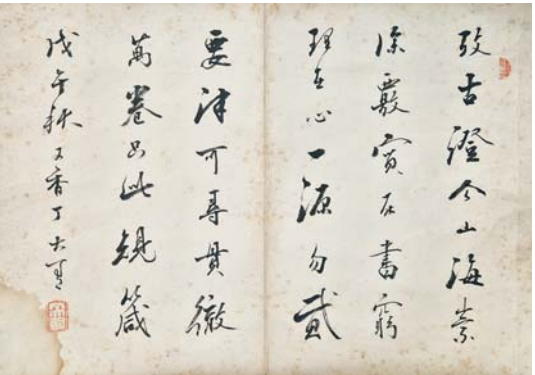 攷古證今山海崇
深覈實在書窮
理在心一源勿貳
要津可尋貫徹
萬卷以此規箴
戊午秋又香丁大